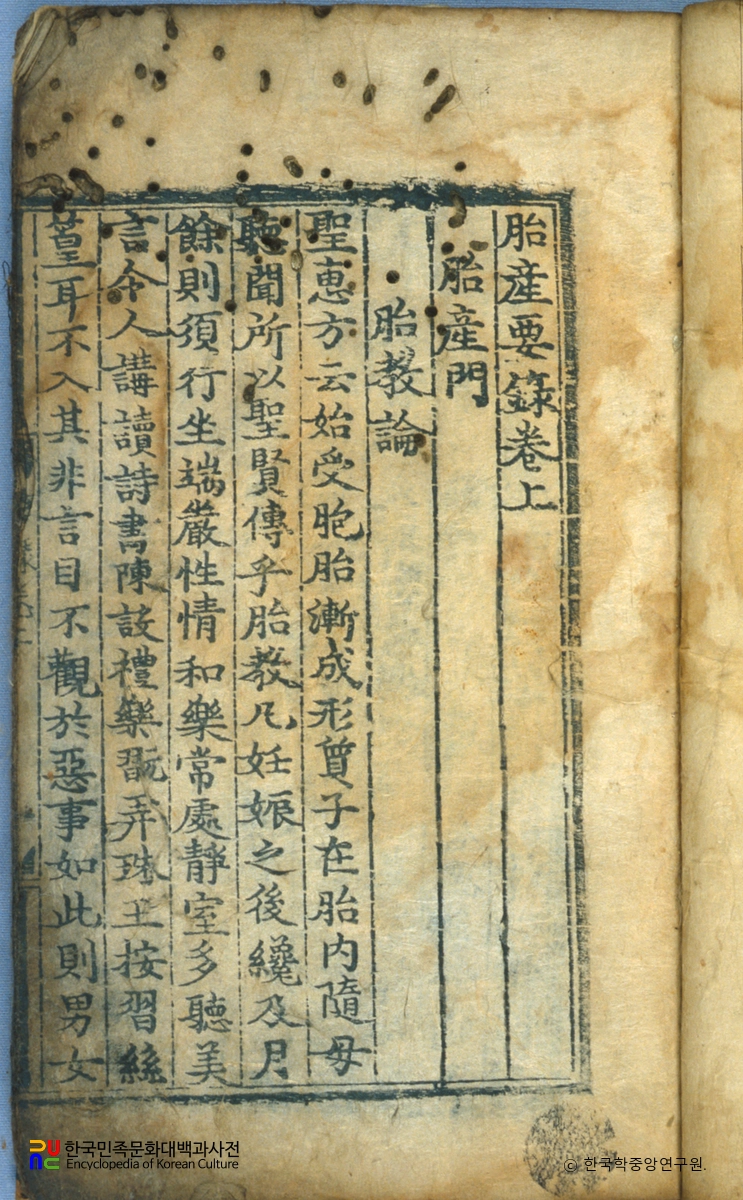 胎産要錄卷上
胎産門
胎教論
聖惠方云始受胞胎漸成形質子在胎内隨母
聽聞所以聖賢傳乎胎教凡妊娠之後纔及月
餘則須行坐端嚴性情和樂常處靜室多聽美
言令人講讀詩書陳設禮樂翫弄珠玉按習絲
篁耳不入其非言目不觀於惡事如此則男女
한국민족문화대백과사전
Encyclopedia of Korean Culture
© 한국학중앙연구원.